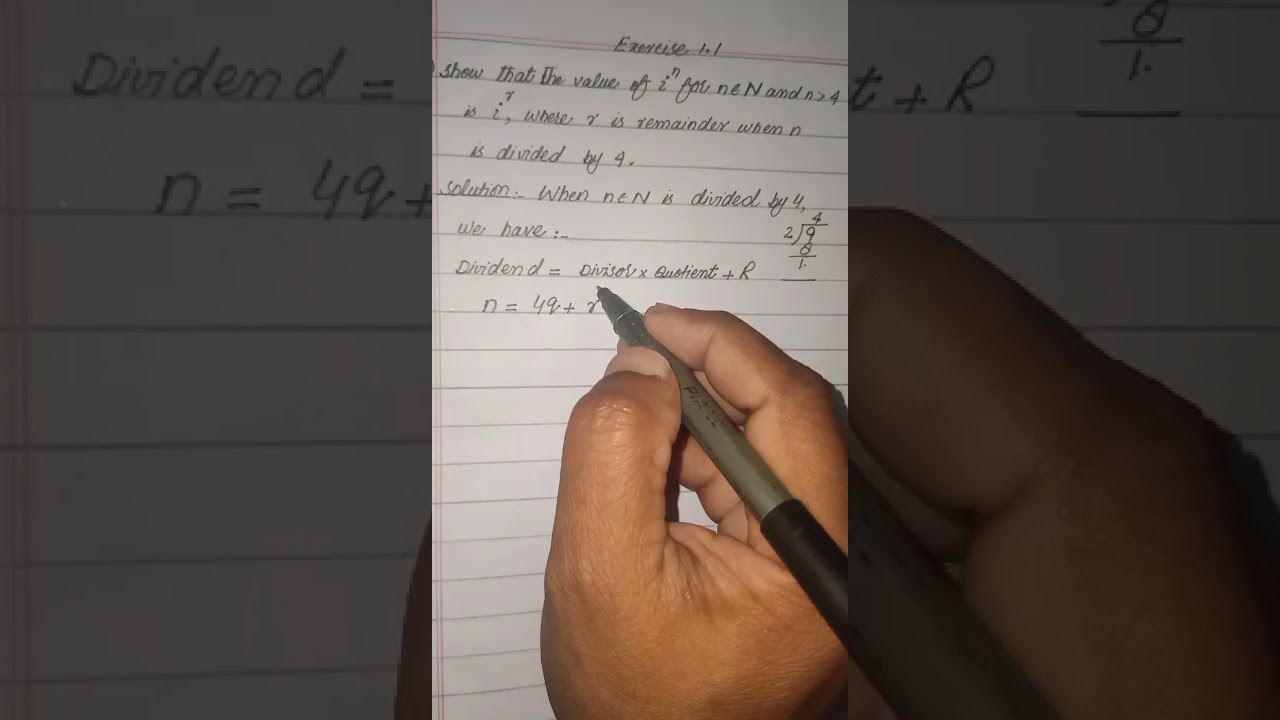 Exercise 1.1
Show that the value of iⁿ for n∈N and n>4
is iʳ, where r is remainder when n
is divided by 4.
Solution:- When n∈N is divided by 4,
We have:-
Dividend = Divisor × Quotient + R
n = 4q + r
4
2)9
8
1.
Dividend =
t + R
n = 4q +
8
1.